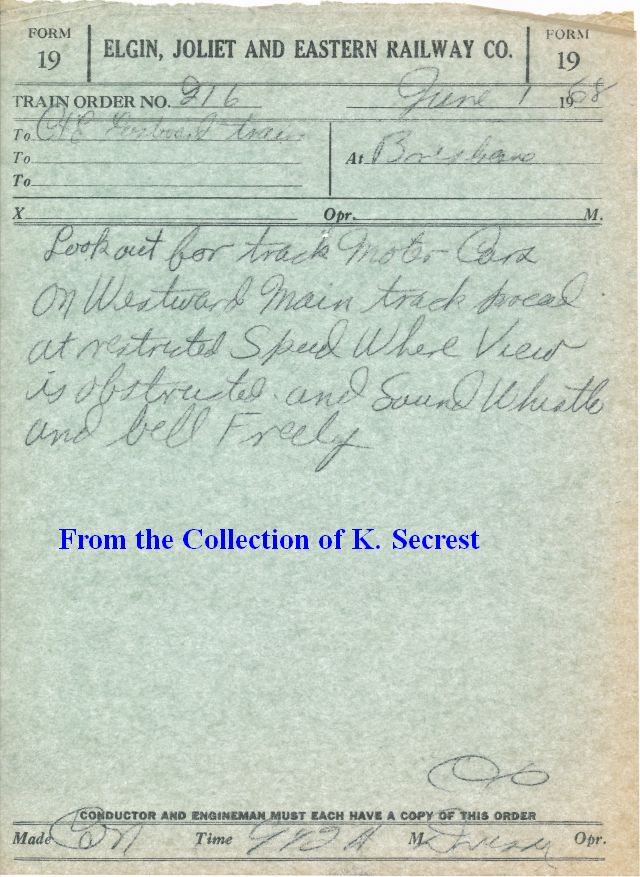 FORM 19 ELGIN, JOLIET AND EASTERN RAILWAY CO. FORM 19
TRAIN ORDER NO. 216 June 1 1968
To C&E Eastward train
To At
To
X Opr. M.
Look out for track Motor Cars
on Westward Main track proceed
at restricted Speed Where View
is obstructed and Sound Whistle
and bell Freely
From the Collection of K. Secrest
CONDUCTOR AND ENGINEMAN MUST EACH HAVE A COPY OF THIS ORDER
Made Time M. Opr.